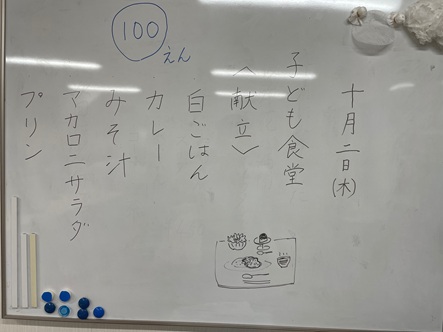 十月二日(木)
子ども食堂
〈献立〉
白ごはん
カレー
みそ汁
マカロニサラダ
プリン
100
えん